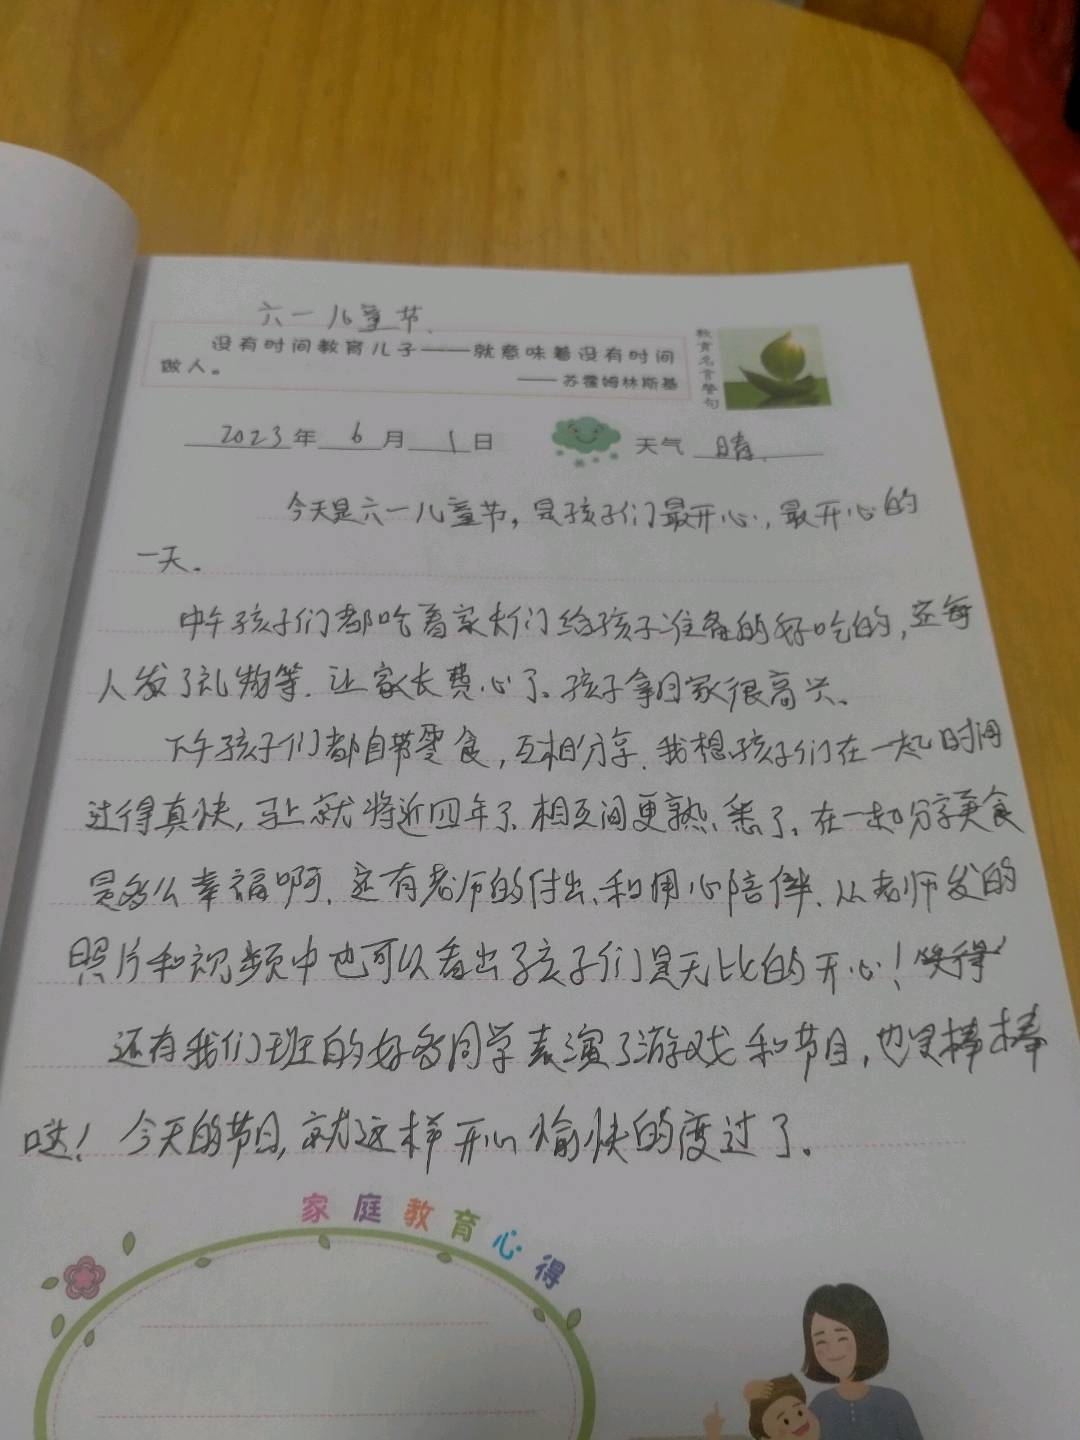 六一儿童节.
没有时间教育儿子——就意味着没有时间
做人。
——苏霍姆林斯基
教育名言警句
2023年 6月 1日 天气 晴.
今天是六一儿童节，是孩子们最开心，最开心的
一天。
中午孩子们都吃着家长们给孩子准备的好吃的，还每
人发了礼物等.让家长费心了。孩子拿回家很高兴。
下午孩子们都自带零食，互相分享.我想孩子们在一起时间
过得真快，马上就将近四年了.相互间更熟悉了.在一起分享美食
是多么幸福啊.还有老师的付出、和用心陪伴.从老师发的
照片和视频中也可以看出了孩子们是无比的开心！
还有我们班的好多同学表演了游戏和节目，也是棒棒
哒！今天的节日，就这样开心愉快的度过了.
家庭教育心得